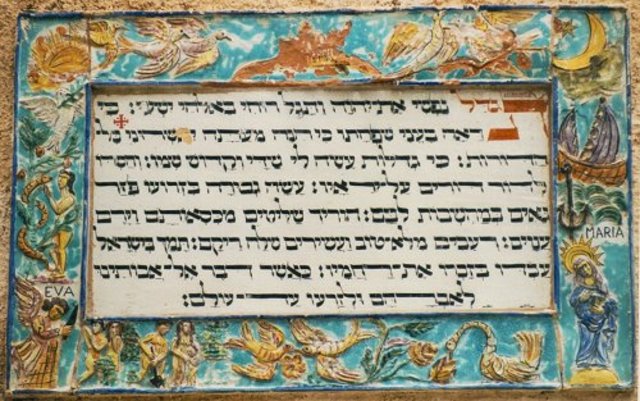 תגדל נפשי את־יהוה ותגל רוחי באלהי ישעי: כי
ראה בעני שפחתו כי הנה מעתה יאשרוני כל
הדורות: כי גדלות עשה לי שדי וקדוש שמו: וחסדו
לדור דורים על־יראיו: עשה גבורה בזרועו פזר
גאים במחשבות לבם: הוריד שליטים מכסאותם וירם
ענוים: רעבים מלא־טוב ועשירים שלח ריקם: תמך בישראל
עבדו בזכרו את־רחמיו: כאשר דבר אל־אבותינו
לאברהם ולזרעו עד־עולם:
MARIA
EVA